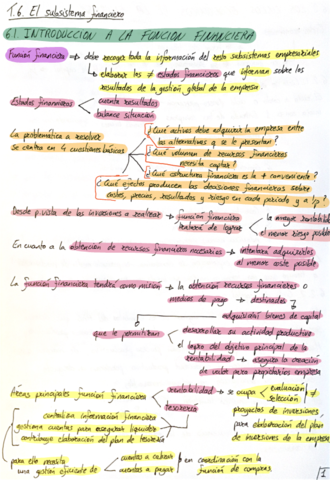 T.6. El subsistema financiero
6.1 INTRODUCCION A LA FUNCION FINANCIERA
Función financiera → debe recoger toda la información del resto subsistemas empresariales
↳ elaborar los ≠ estados financieros que informan sobre los
resultados de la gestión global de la empresa.
Estados financieros < cuenta resultados
balance situación
¿Qué activos debe adquirir la empresa entre
las alternativas q se le presentan?
La problemática a resolver
se centra en 4 cuestiones básicas
¿Qué volumen de recursos financieros
necesita captar?
¿Qué estructura financiera es la + conveniente?
¿Qué efectos producen las decisiones financieras sobre
costes, precios, resultados y riesgo en cada periodo y a lp?
Desde p.vista de las inversiones a realizar → función financiera
tratará de lograr < la mayor rentabilidad
el menor riesgo posible
En cuanto a la obtención de recursos financieros necesarios → intentará adquirirlos
al menor coste posible
La función financiera tendrá como misión → la obtención recursos financieros o
medios de pago → destinados
adquisición bienes de capital
que le permitirán < desarrollar su actividad productiva
el logro del objetivo principal de la
rentabilidad → asegura la creación
de valor para propietarios empresa
Áreas principales función financiera < rentabilidad → se ocupa < evaluación ≠
selección
tesorería
proyectos de inversiones
para elaboración del plan
de inversiones de la empresa
controla la información financiera
gestiona cuentas para asegurar liquidez
contribuye elaboración del plan de tesorería
para ello necesita
una gestión eficiente de < cuentas a cobrar
cuentas a pagar
en coordinación con la
función de compras
1